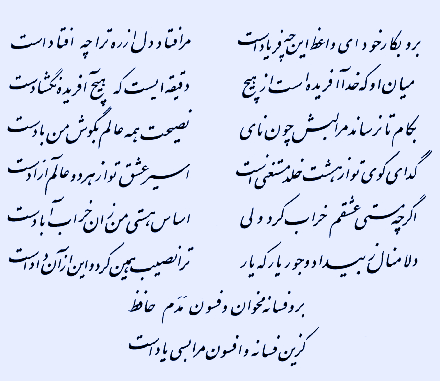 برو بکار خود ای واعظ این چه فریادست مرا فتاد دل از ره ترا چه افتادست
میان او که خدا آفریده است از هیچ دقیقه ایست که هیچ آفریده نگشادست
بکام تا نرساند مرا لبش چون نای نصیحت همه عالم بگوش من بادست
گدای کوی تو از هشت خلد مستغنی است اسیر عشق تو از هر دو عالم آزادست
اگرچه مستی عشقم خراب کرد ولی اساس هستی من زان خراب آبادست
دلا منال ز بیداد و جور یار که یار ترا نصیب همین کرد و این از آن دادست
برو فسانه مخوان و فسون مدم حافظ
کزین فسانه و افسون مرا بسی یادست